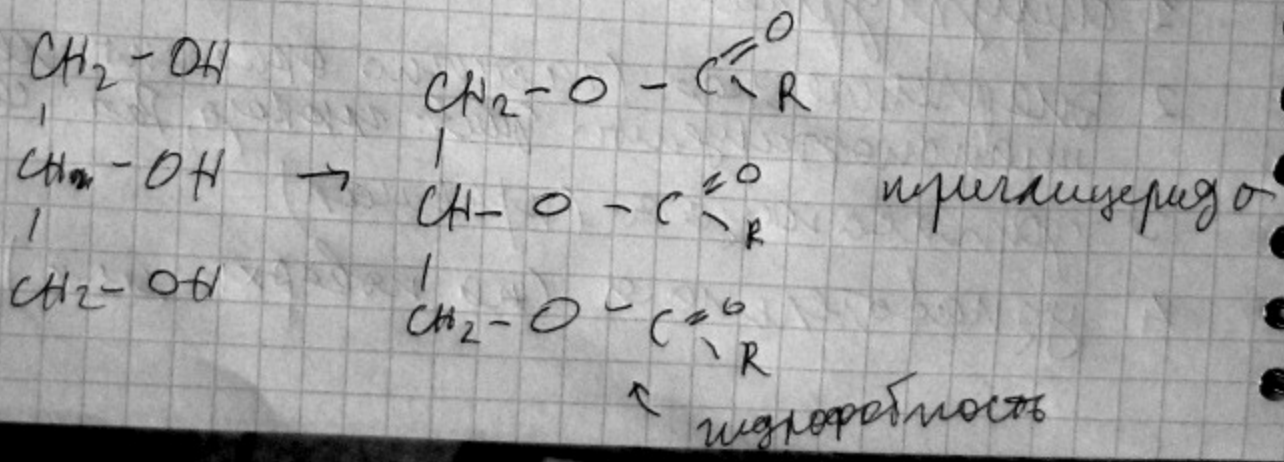 CH₂ - OH
CH - OH → 
CH₂ - OH
CH₂ - O - C =O R
CH - O - C =O R
CH₂ - O - C =O R
триглицерид
гидрофобность